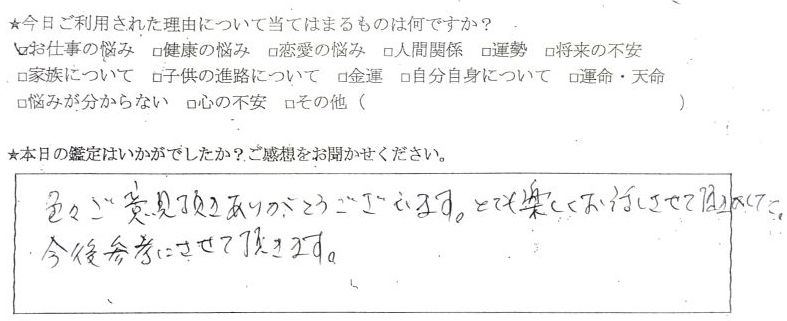 ★今日ご利用された理由について当てはまるものは何ですか？
☑お仕事の悩み □健康の悩み □恋愛の悩み □人間関係 □運勢 □将来の不安
□家族について □子供の進路について □金運 □自分自身について □運命・天命
□悩みが分からない □心の不安 □その他（　　　）
★本日の鑑定はいかがでしたか？ご感想をお聞かせください。
色々ご意見頂きありがとうございます。とても楽しくお話しさせて頂きました。
今後参考にさせて頂きます。